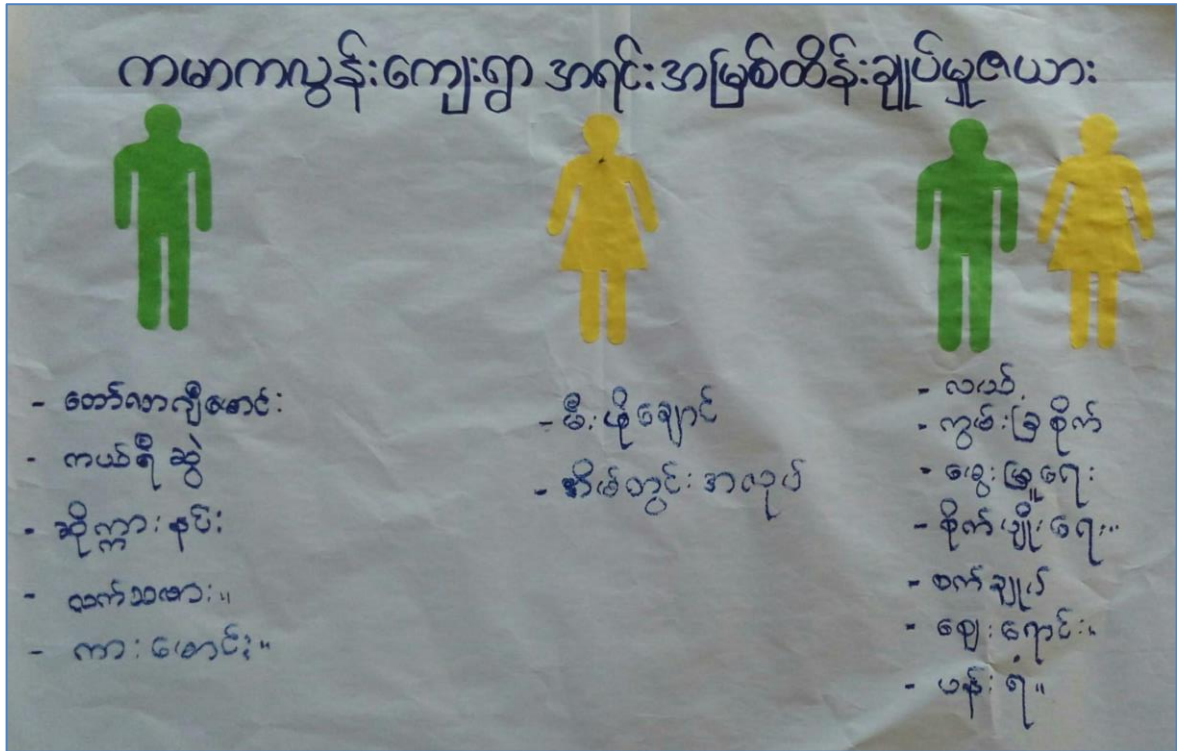 ကမာကလွန်းကျေးရွာ အရင်းအမြစ်ထိန်းချုပ်မှုဇယား
- တော်လာဂျီမောင်း
- ကယ်ရီ ဆွဲ
- ဆိုက္ကား နင်း
- လက်သမား။
- ကား မောင်း။
- မီးဖိုချောင်
- အိမ်တွင်း အလုပ်
- လယ်
- ကွမ်းခြံ စိုက်
- မွေးမြူရေး
- စိုက်ပျိုးရေး။
- စက်ချုပ်
- ဈေးရောင်း။
- ပန်းရံ။